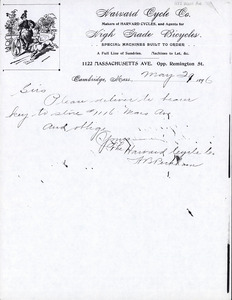 Harvard Cycle Co.
Makers of HARVARD CYCLES, and Agents for
High Grade Bicycles.
SPECIAL MACHINES BUILT TO ORDER
A Full Line of Sundries. Machines to Let, &c.
1122 MASSACHUSETTS AVE. Opp. Remington St.
Cambridge, Mass. May 29 1896
Sirs
Please deliver to bearer
key to store Mass Ave
and oblige
Yours
The Harvard Cycle Co